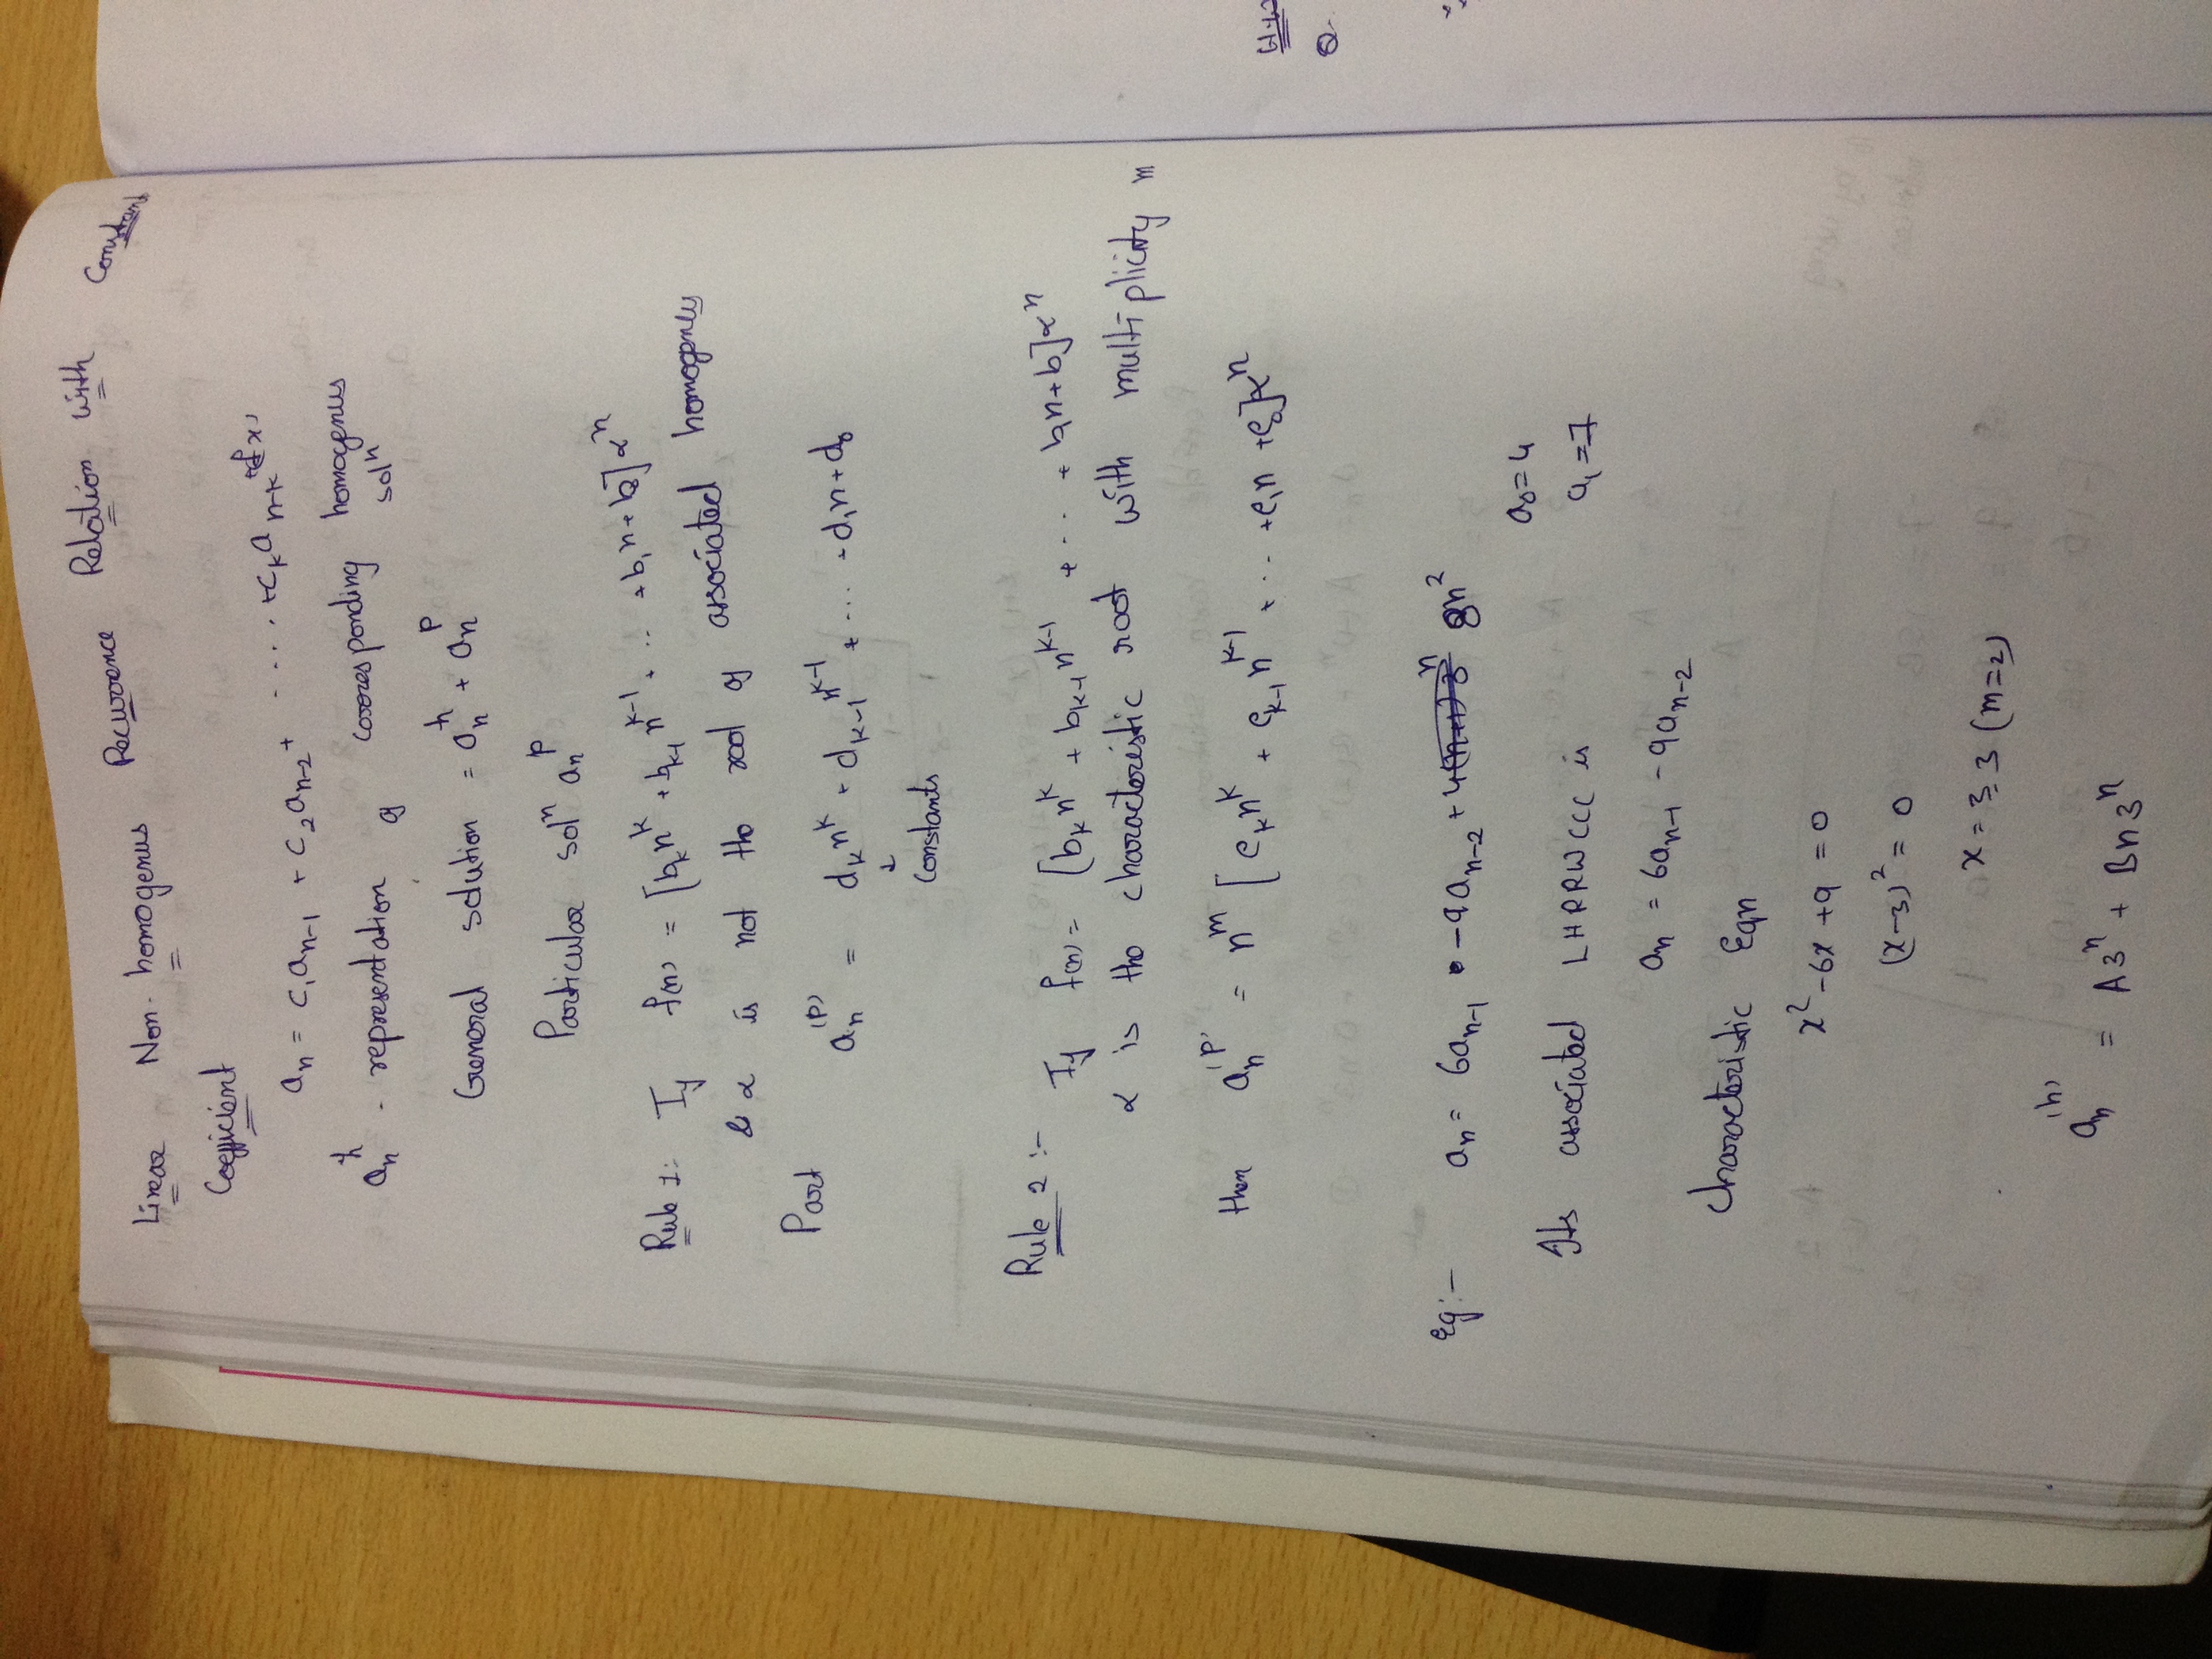 Linear Non-homogenus Recurrence Relation with Constant
Coefficient
aₙ = c₁aₙ₋₁ + c₂aₙ₋₂ + .... + cₖaₙ₋ₖ + f(x)
aₙʰ - representation of corresponding homogenus solⁿ
General solution = aₙʰ + aₙᵖ
Particular solⁿ aₙᵖ
Rule 1: If f(n) = [bₖnᵏ + bₖ₋₁nᵏ⁻¹ + ... + b₁n + b₀]αⁿ
& α is not the root of associated homogenus
Part aₙ⁽ᵖ⁾ = dₖnᵏ + dₖ₋₁nᵏ⁻¹ + ... + d₁n + d₀
constants
Rule 2 :- If f(n) = [bₖnᵏ + bₖ₋₁nᵏ⁻¹ + ... + b₁n + b]αⁿ
α is the characteristic root with multiplicity m
then aₙ⁽ᵖ⁾ = nᵐ [eₖnᵏ + eₖ₋₁nᵏ⁻¹ + ... + e₁n + e₀]αⁿ
eg:- aₙ = 6aₙ₋₁ - 9aₙ₋₂ + 4(n+1)3ⁿ 8n²
a₀ = 4
a₁ = 7
Its associated LHRRWCC is
aₙ = 6aₙ₋₁ - 9aₙ₋₂
Characteristic Eqn
x² - 6x + 9 = 0
(x-3)² = 0
x = 3, 3 (m=2)
aₙ⁽ʰ⁾ = A3ⁿ + Bn3ⁿ
H.W
Q.